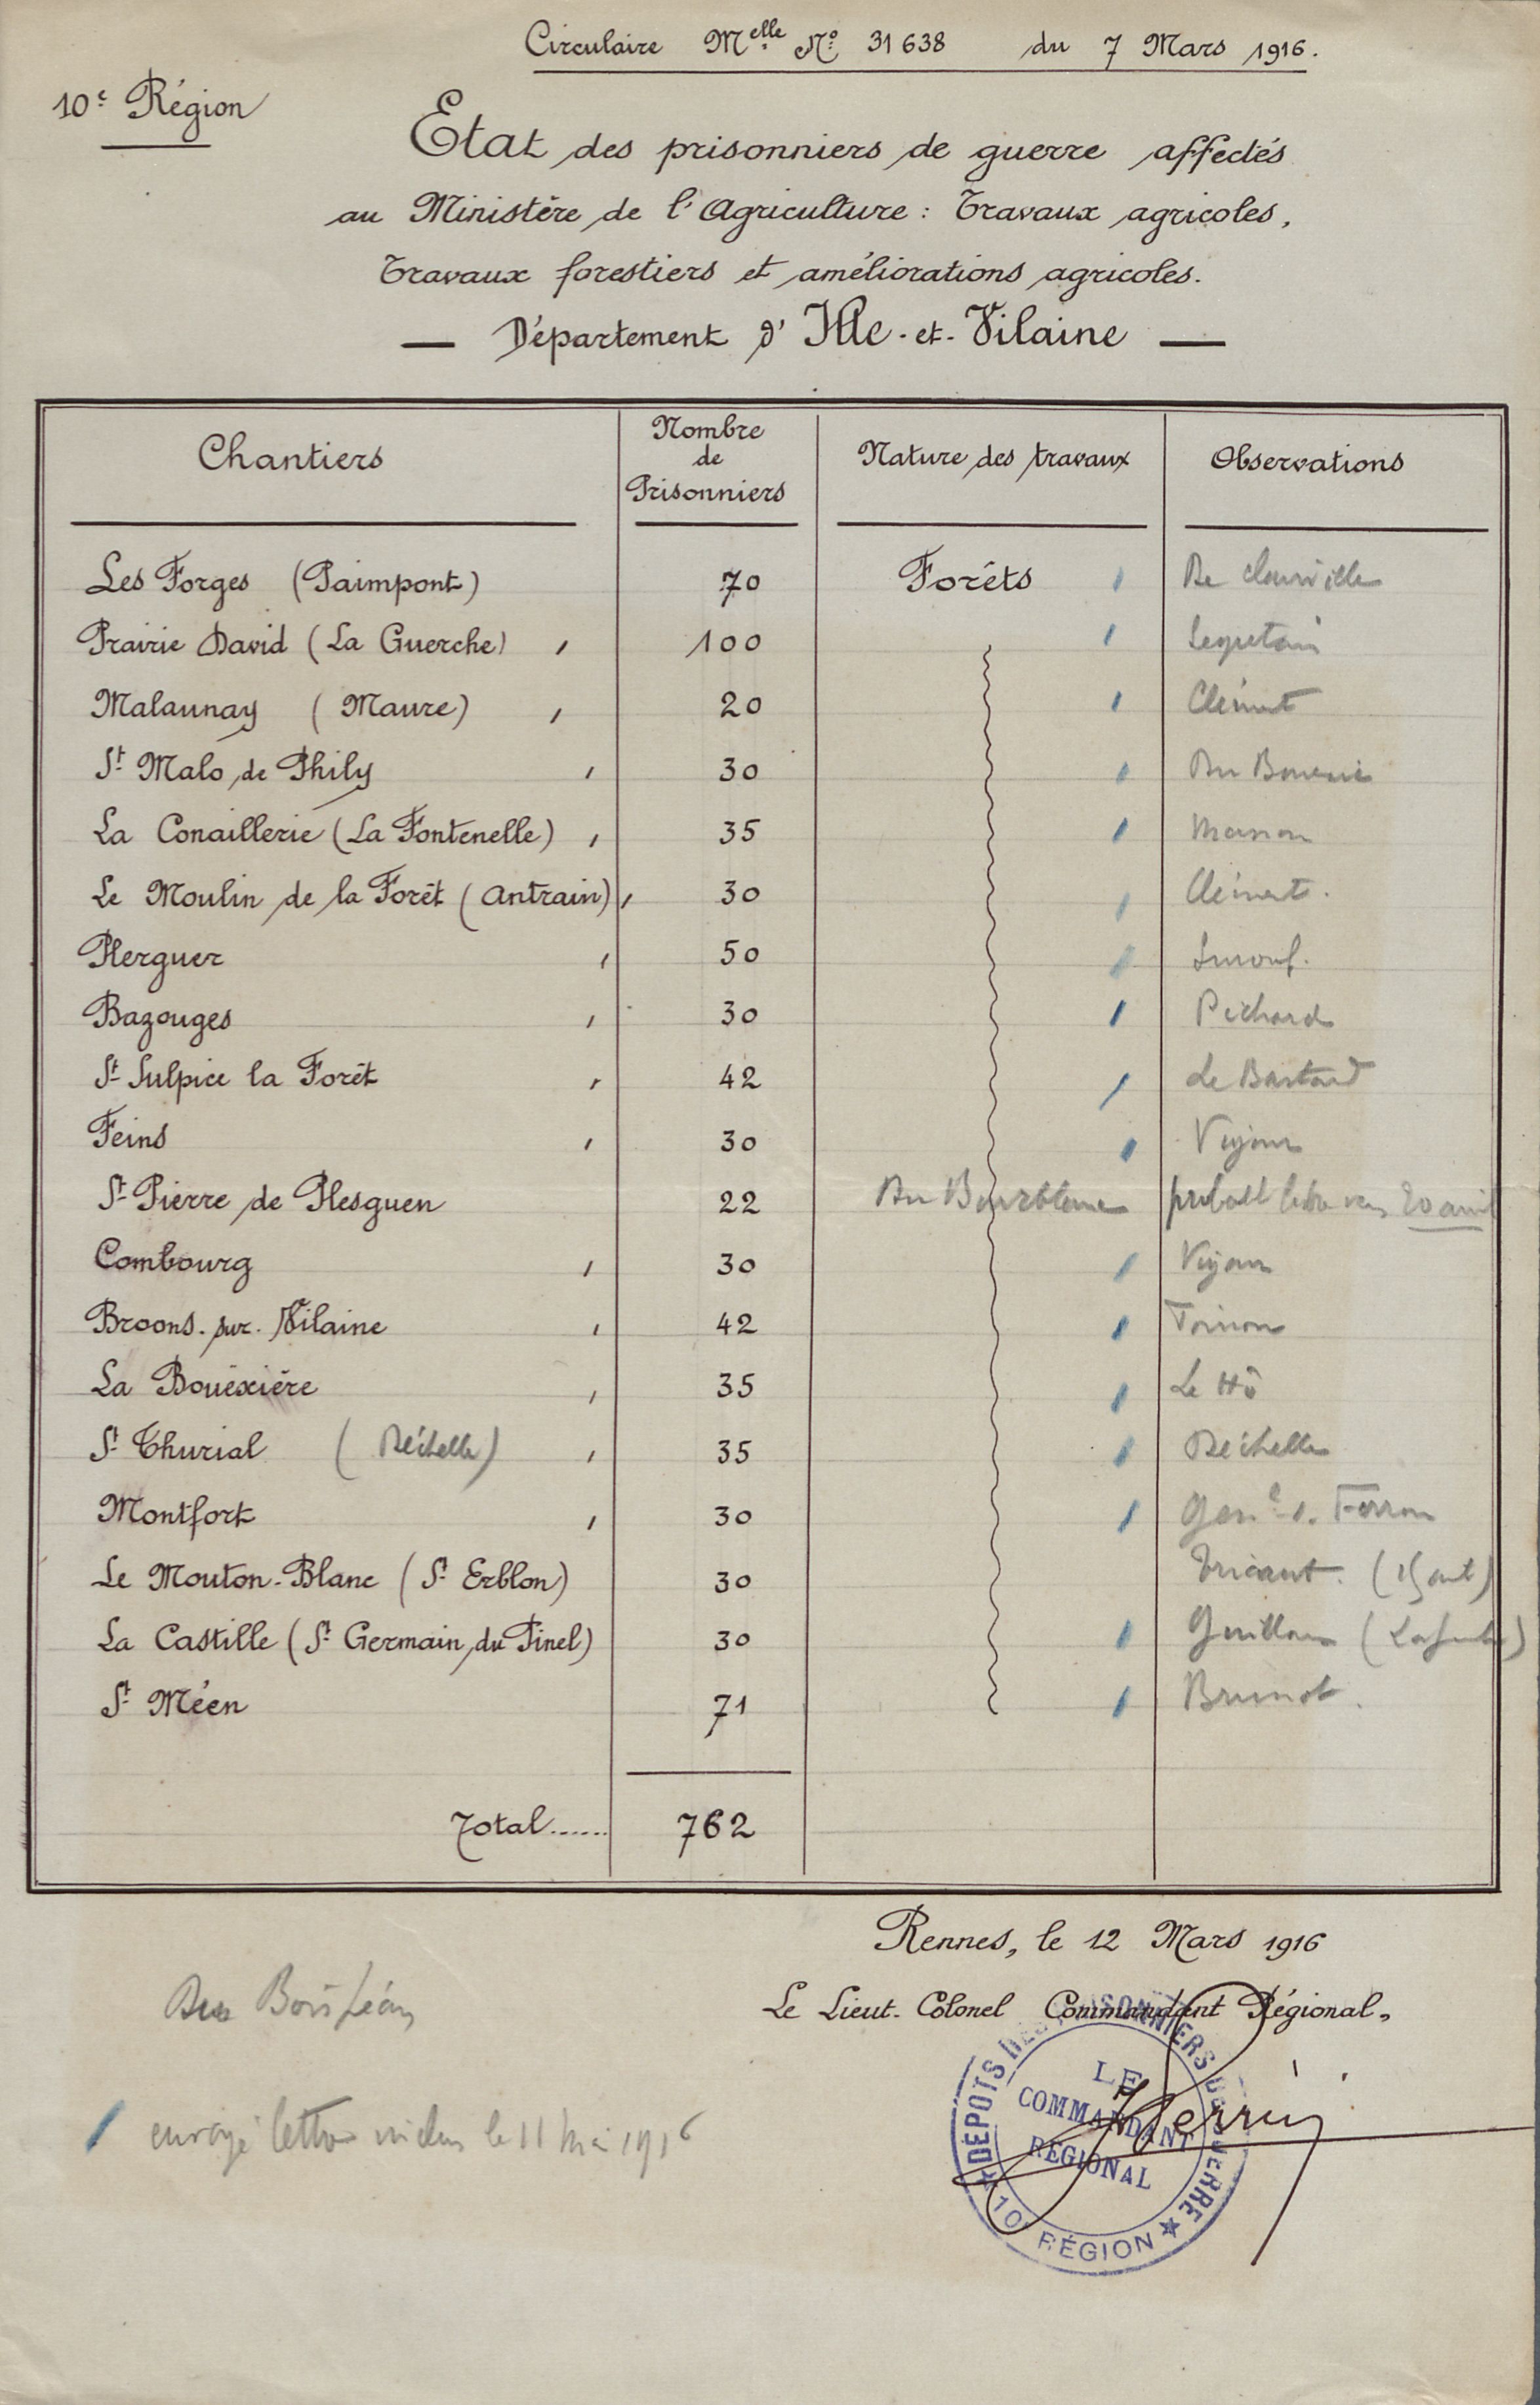 Circulaire Melle No 31638 du 7 Mars 1916.
10e Région
Etat des prisonniers de guerre affectés
au Ministère de l'Agriculture : Travaux agricoles,
Travaux forestiers et améliorations agricoles.
— Département d'Ille-et-Vilaine —
Chantiers Nombre de Prisonniers Nature des travaux Observations
Les Forges (Paimpont) 70 Forêts De
Prairie David (La Guerche) 100
Malaunay (Maure) 20 Clément
St Malo de Phily 30 Du
La Conaillerie (La Fontenelle) 35
Le Moulin de la Forêt (Antrain) 30 Clément.
Plerguer 50
Bazouges 30 Pichard
St Sulpice la Forêt 42 Le Bastard
Feins 30
St Pierre de Plesguen 22 Du lettre 20 avril
Combourg 30
Broons-sur-Vilaine 42
La Bouëxière 35 Le Hô
St Thurial (Béchelle) 35 Béchelle
Montfort 30 Ferron
Le Mouton-Blanc (St Erblon) 30
La Castille (St Germain du Pinel) 30
St Méen 71
Total...... 762
Rennes, le 12 Mars 1916
Le Lieut-Colonel Commandant Régional,
DÉPOTS DES PRISONNIERS DE GUERRE
LE
COMMANDANT
RÉGIONAL
★ 10e RÉGION ★
envoyé lettre le 11 mai 1916